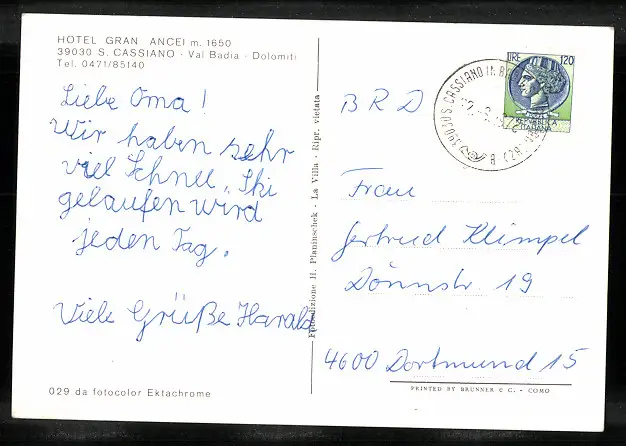 HOTEL GRAN ANCEI m. 1650
39030 S. CASSIANO - Val Badia - Dolomiti
Tel. 0471/85140
Liebe Oma!
Wir haben sehr
viel Schnee, Ski
gelaufen wird
jeden Tag.
Viele Grüße Harald
029 da fotocolor Ektachrome
Fotoedizione H. Planinschek - La Villa - Ripr. vietata
LIRE 120
REPUBBLICA
ITALIANA
39030 S. CASSIANO IN
BRD
Frau
Gertrud Klimpel
Dönnstr. 19
4600 Dortmund 15
PRINTED BY BRUNNER & C. - COMO